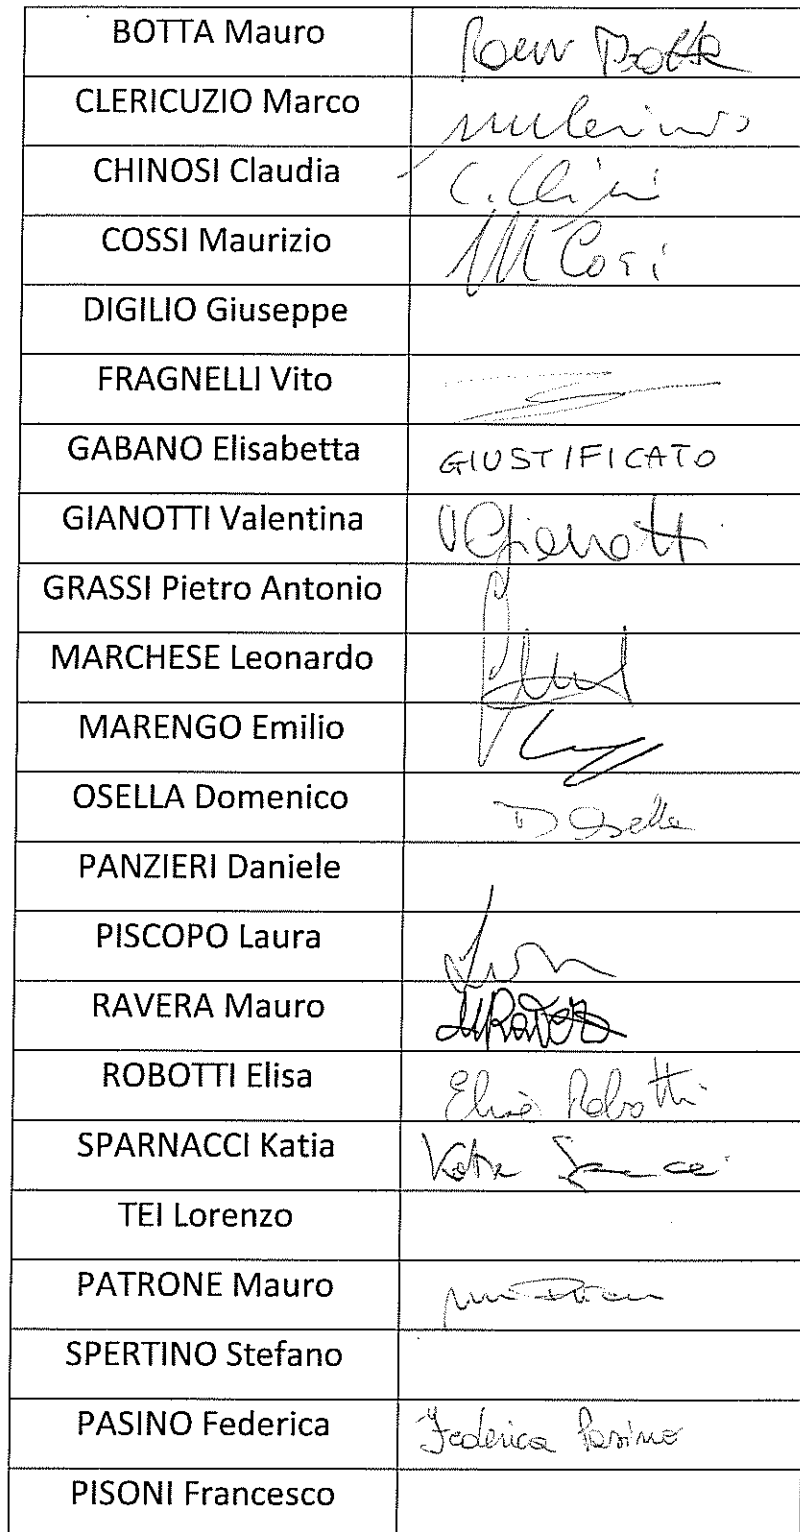 BOTTA Mauro
CLERICUZIO Marco
CHINOSI Claudia
COSSI Maurizio
DIGILIO Giuseppe
FRAGNELLI Vito
GABANO Elisabetta GIUSTIFICATO
GIANOTTI Valentina VGianotti
GRASSI Pietro Antonio
MARCHESE Leonardo
MARENGO Emilio
OSELLA Domenico D Osella
PANZIERI Daniele
PISCOPO Laura
RAVERA Mauro
ROBOTTI Elisa Elisa Robotti
SPARNACCI Katia Katia
TEI Lorenzo
PATRONE Mauro
SPERTINO Stefano
PASINO Federica Federica Pasino
PISONI Francesco